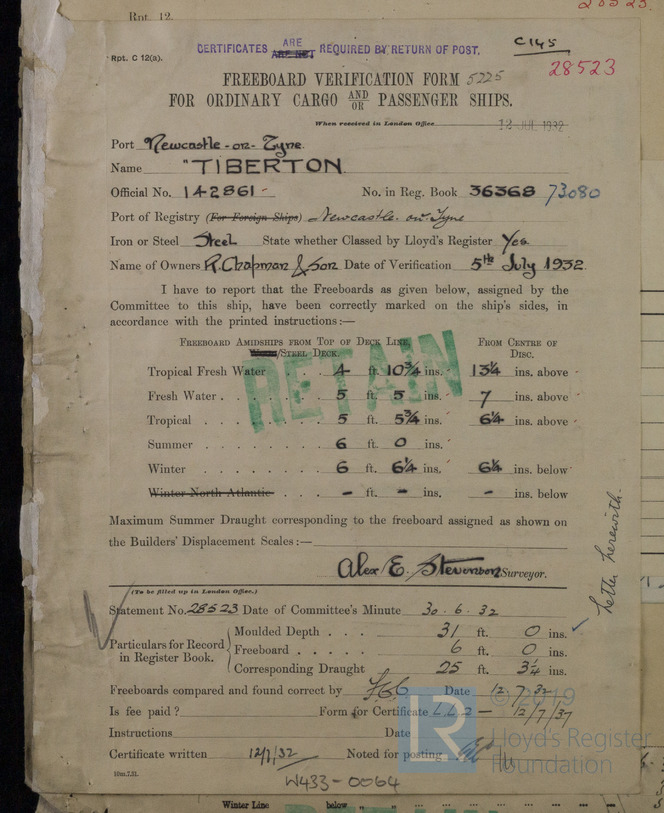 28523
Rpt. 12.
CERTIFICATES ARE REQUIRED BY RETURN OF POST.
ARE NOT
C145
Rpt. C 12(a).
28523
FREEBOARD VERIFICATION FORM 5225
FOR ORDINARY CARGO AND/OR PASSENGER SHIPS.
When received in London Office 12 JUL 1932
Port Newcastle-on-Tyne.
Name "TIBERTON
Official No. 142861 No. in Reg. Book 36368 73080
Port of Registry (For Foreign Ships) Newcastle on Tyne
Iron or Steel Steel State whether Classed by Lloyd's Register Yes.
Name of Owners R. Chapman & Son Date of Verification 5th July 1932.
I have to report that the Freeboards as given below, assigned by the
Committee to this ship, have been correctly marked on the ship's sides, in
accordance with the printed instructions:—
FREEBOARD AMIDSHIPS FROM TOP OF DECK LINE FROM CENTRE OF
/STEEL DECK. DISC.
RETAIN
Tropical Fresh Water 4 ft. 10¾ ins. 13¼ ins. above
Fresh Water 5 ft. 5 ins. 7 ins. above
Tropical 5 ft. 5¾ ins. 6¼ ins. above
Summer 6 ft. 0 ins.
Winter 6 ft. 6¼ ins. 6¼ ins. below
Winter North Atlantic - ft. - ins. - ins. below
Maximum Summer Draught corresponding to the freeboard assigned as shown on
the Builders' Displacement Scales:—
Alex E. Stevenson Surveyor.
letter herewith.
(To be filled up in London Office.)
Statement No. 28523 Date of Committee's Minute 30.6.32
Particulars for Record in Register Book.
Moulded Depth 31 ft. 0 ins.
Freeboard 6 ft. 0 ins.
Corresponding Draught 25 ft. 3¼ ins.
Freeboards compared and found correct by Date 12.7.32
Is fee paid? Form for Certificate L.L.2 — 12/7/37
Instructions Date
Certificate written 12/7/32 Noted for posting
10m.7.31.
W433-0064
© 2019
Lloyd's Register
Foundation
Winter Line below
RETAIN